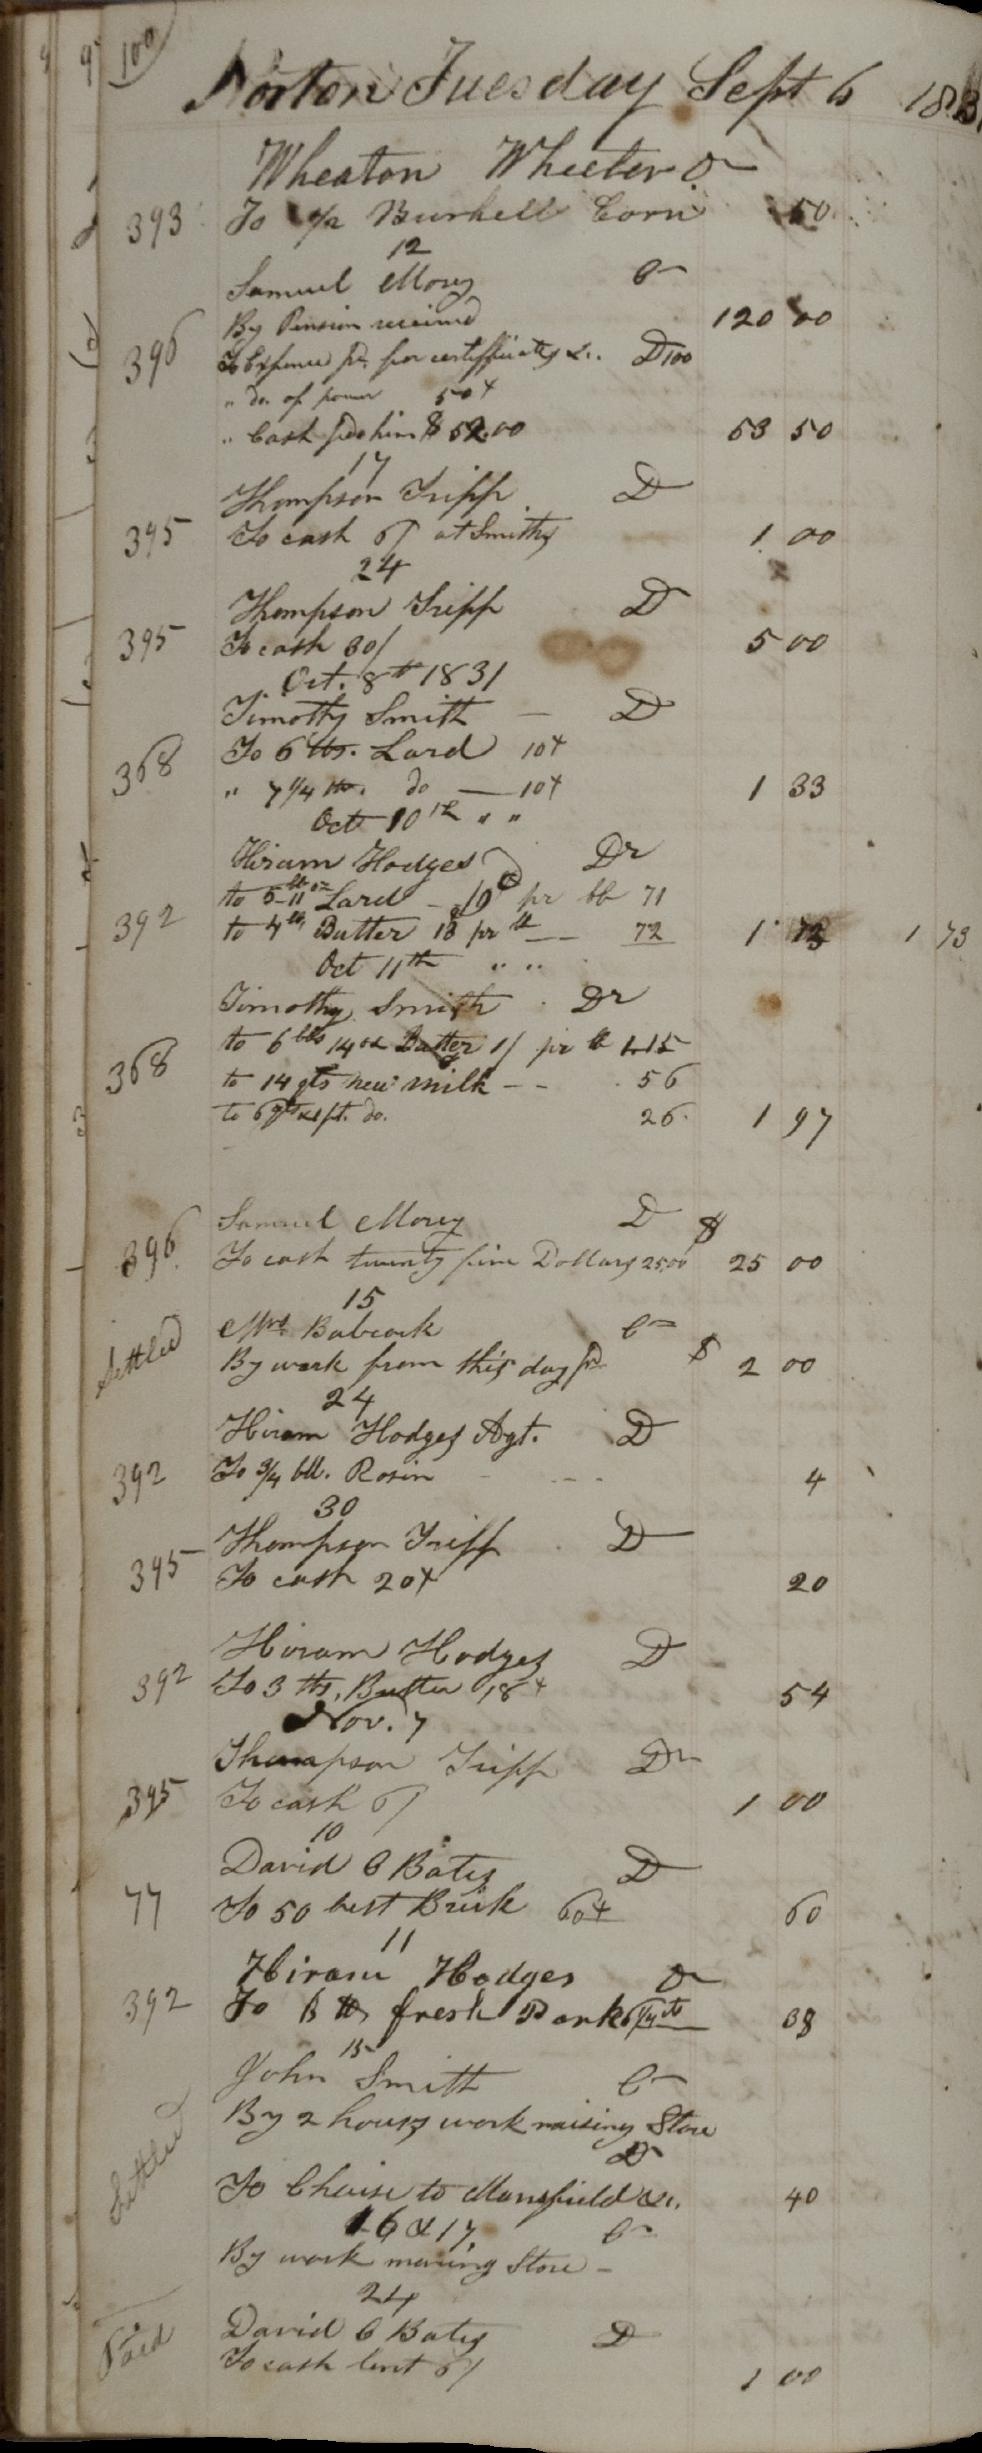 100
Norton Tuesday Sept 6 1831
Wheaton Wheeler Dr
393 To 1/2 Burhell Corn 50
12
Samuel Morey Cr
By Pension received 120 00
396 To Expence pd. for certifficates &c. D 100
" do. of power 50 ¢
" Cash pd him $ 52.00 53 50
17
Thompson Tripp D
395 To cash 6/ at Smiths 1 00
24
Thompson Tripp D
395 To cash 30/ 5 00
Oct. 8th 1831
Timothy Smith — D
368 To 6 lbs. Lard 10 ¢
" 7 1/4 lbs. do — 10 ¢ 1 33
Oct 10th " "
Hiram Hodges Dr
to 5 lb 11 oz Lard - pr lb 71
392 to 4 lb Butter 18 pr lb — 72 1 73 1 73
Oct 11th " "
Timothy Smith Dr
to 6 lbs 14 oz Butter 1/ pr lb 1.15
368 to 14 qts new milk - - 56
to 6 do. 26 1 97
Samuel Morey D $
396 To cash twenty five Dollars 25,00 25 00
15
Mrs. Babcock Cr
Settled By work from this day $ 2 00
24
Hiram Hodges Agt. D
392 To 3/4 bll. Rosin - - - 4
30
Thompson Tripp D
395 To cash 20 ¢ 20
Hiram Hodges D
392 To 3 lbs, Butter 18 ¢ 54
Nov. 7
Thompson Tripp Dr
395 To cash 6/ 1 00
10
David C Bates D
77 To 50 best Brick 60 ¢ 60
11
Hiram Hodges Dr
392 To lbs fresh Pork 38
15
John Smith Cr
By 2 hours work raising Store
D
Settled To Chaise to Mansfield &c. 40
16 & 17 Cr
By work moving Store -
24
David C Bates D
Paid To cash lent 6/ 1 00